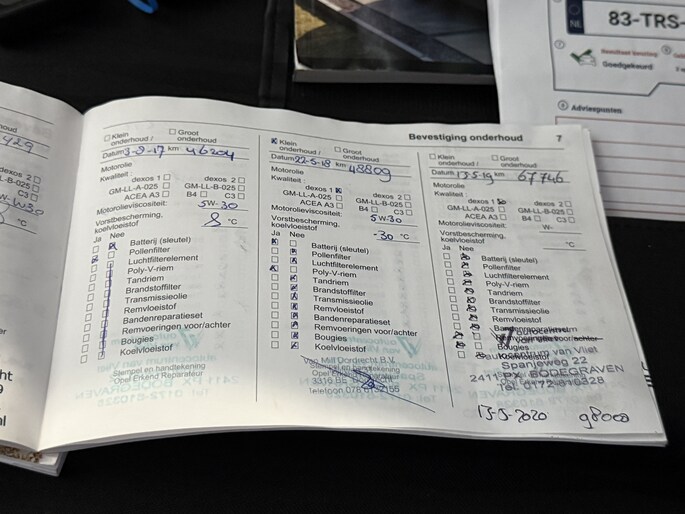 NL
83-TRS-
Goedgekeurd
Adviespunten:
Bevestiging onderhoud 7
Klein onderhoud /
Groot onderhoud
Datum 3-8-17 km 46204
Motorolie
Kwaliteit :
dexos 1
dexos 2
GM-LL-A-025
GM-LL-B-025
ACEA A3
B4
C3
Motorolieviscositeit: 5W-30
Vorstbescherming, koelvloeistof °C
Ja Nee
Batterij (sleutel)
Pollenfilter
Luchtfilterelement
Poly-V-riem
Tandriem
Brandstoffilter
Transmissieolie
Remvloeistof
Bandenreparatieset
Remvoeringen voor/achter
Bougies
Koelvloeistof
Stempel en handtekening
Opel Erkend Reparateur
Klein onderhoud /
Groot onderhoud
Datum 22-5-18 km 48809
Motorolie
Kwaliteit :
dexos 1
dexos 2
GM-LL-A-025
GM-LL-B-025
ACEA A3
B4
C3
Motorolieviscositeit: 5W30
Vorstbescherming, koelvloeistof -30 °C
Ja Nee
Batterij (sleutel)
Pollenfilter
Luchtfilterelement
Poly-V-riem
Tandriem
Brandstoffilter
Transmissieolie
Remvloeistof
Bandenreparatieset
Remvoeringen voor/achter
Bougies
Koelvloeistof
Van Mill Dordrecht B.V.
Stempel en handtekening
Opel Erkend Reparateur
Klein onderhoud /
Groot onderhoud
Datum 13-5-19 km 67746
Motorolie
Kwaliteit :
dexos 1
dexos 2
GM-LL-A-025
GM-LL-B-025
ACEA A3
B4
C3
Motorolieviscositeit: W-
Vorstbescherming, koelvloeistof °C
Ja Nee
Batterij (sleutel)
Pollenfilter
Luchtfilterelement
Poly-V-riem
Tandriem
Brandstoffilter
Transmissieolie
Remvloeistof
Bandenreparatieset
Remvoeringen voor/achter
Bougies
autocentrum van Vliet
Spanjeweg 22
2411 PX BODEGRAVEN
Tel. 0172-610328
13-5-2020 98000